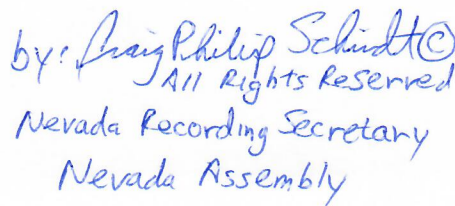 by: Craig Philip Schmidt©
All Rights Reserved
Nevada Recording Secretary
Nevada Assembly